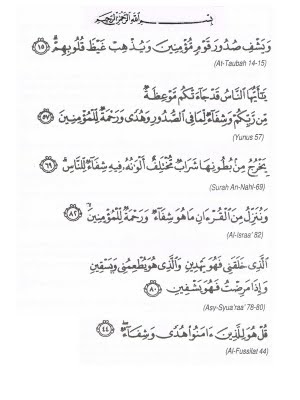 بِسْمِ اللَّهِ الرَّحْمَٰنِ الرَّحِيمِ
وَيَشْفِ صُدُورَ قَوْمٍ مُّؤْمِنِينَ ﴿١٤﴾ وَيُذْهِبْ غَيْظَ قُلُوبِهِمْ ﴿١٥﴾
(At-Taubah 14-15)
يَٰٓأَيُّهَا ٱلنَّاسُ قَدْ جَآءَتْكُم مَّوْعِظَةٌ
مِّن رَّبِّكُمْ وَشِفَآءٌ لِّمَا فِى ٱلصُّدُورِ وَهُدًى وَرَحْمَةٌ لِّلْمُؤْمِنِينَ ﴿٥٧﴾
(Yunus 57)
يَخْرُجُ مِنۢ بُطُونِهَا شَرَابٌ مُّخْتَلِفٌ أَلْوَٰنُهُۥ فِيهِ شِفَآءٌ لِّلنَّاسِ ﴿٦٩﴾
(Surah An-Nahl-69)
وَنُنَزِّلُ مِنَ ٱلْقُرْءَانِ مَا هُوَ شِفَآءٌ وَرَحْمَةٌ لِّلْمُؤْمِنِينَ ﴿٨٢﴾
(Al-Israa' 82)
ٱلَّذِى خَلَقَنِى فَهُوَ يَهْدِينِ وَٱلَّذِى هُوَ يُطْعِمُنِى وَيَسْقِينِ
وَإِذَا مَرِضْتُ فَهُوَ يَشْفِينِ ﴿٨٠﴾
(Asy-Syua'raa' 78-80)
قُلْ هُوَ لِلَّذِينَ ءَامَنُوا۟ هُدًى وَشِفَآءٌ ﴿٤٤﴾
(Al-Fussilat 44)